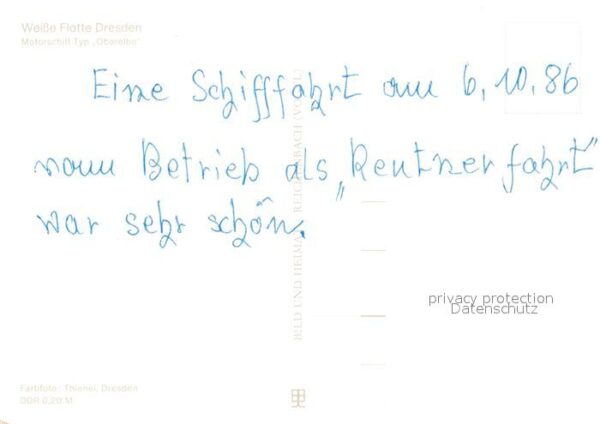 Weiße Flotte Dresden
Motorschiff Typ „Oberelbe"
Eine Schifffahrt am 6.10.86
vom Betrieb als „Rentnerfahrt"
war sehr schön.
BILD UND HEIMAT REICHENBACH (VOGTL)
privacy protection
Datenschutz
Farbfoto: Thienel, Dresden
DDR 0,20 M